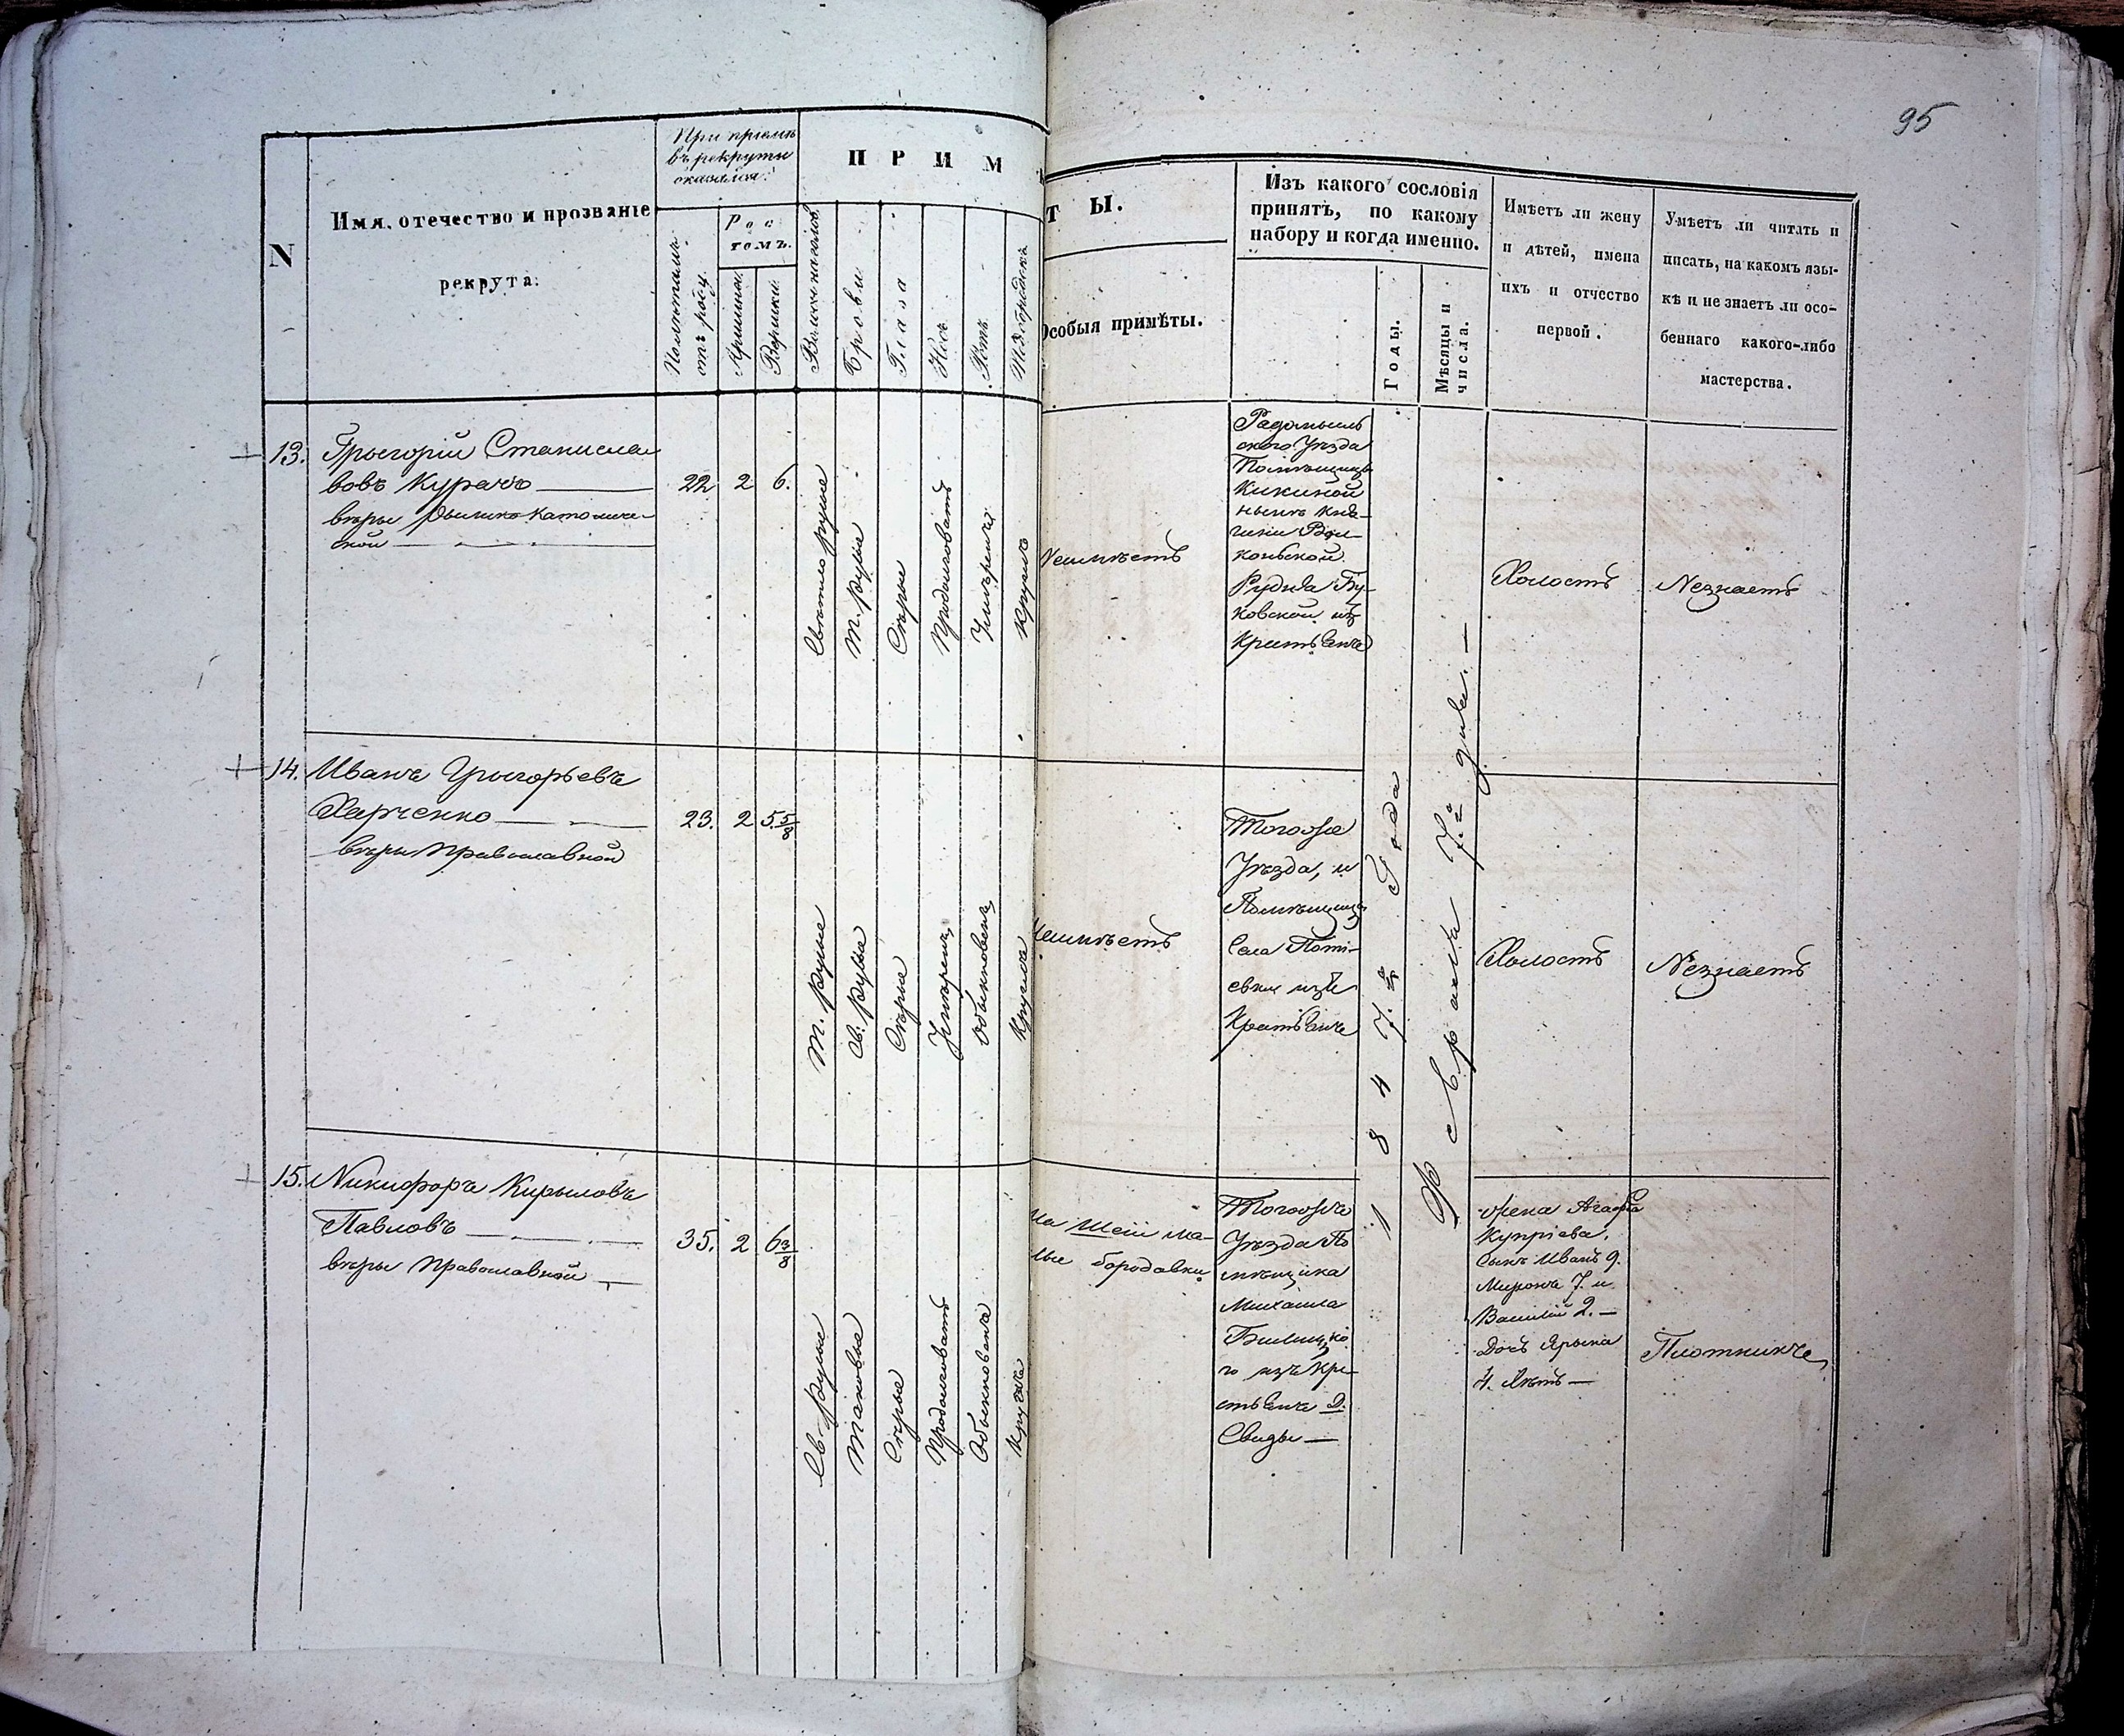 95
N
Имя, отечество и прозваніе
рекрута:
При пріемѣ
въ рекруты
оказался:
Полнѣтамъ
отъ роду
Рос
томъ.
Аршины
Вершки
П Р И М
Т Ы.
Волосы на голов.
Брови
Глаза
Носъ
Ротъ
Подбородокъ
Особыя примѣты.
Изъ какого сословія
принятъ, по какому
набору и когда именно.
Годы.
Мѣсяцы и
числа.
Имѣетъ ли жену
и дѣтей, имена
ихъ и отчество
первой.
Умѣетъ ли читать и
писать, на какомъ язы-
кѣ и не знаетъ ли осо-
беннаго какого-либо
мастерства.
13.
Грыгорій Станисла
вовъ Курачъ
вѣры Рымско Католиче-
ской
22
2
6.
Свѣтло русые
т. русые
Сѣрые
Продолговатъ
Умѣренъ
Круглъ
Неимѣетъ
Радомысль
ского Уѣзда
Помѣщицы
Кикиной
нынѣ Кня-
гини Вол-
конской
Рудня Бу-
ковской изъ
Крестьянъ
Холостъ
Незнаетъ
14.
Иванъ Грыгорьевъ
Харченко
вѣры Православной
23.
2
5.5/8
т. русые
св. русые
Сѣрые
Умѣренъ
Обыкновенъ
Круглъ
Неимѣетъ
Тогоже
Уѣзда, и
Помѣщицы
Села Поті-
евки изъ
Крестьянъ
1847го Года
Февраля 7го дня.—
Холостъ
Незнаетъ
15.
Никифоръ Кирыловъ
Павловъ
вѣры Православной
35.
2
6 3/8
Св. русые
Таковые
Сѣрые
Продолговатъ
Обыкновенъ
Круглъ
На шеи ма-
лые бородавки
Тогоже
Уѣзда По
мѣщика
Михаила
Билицко
го изъ Кре
стьянъ Д.
Свиды —
Жена Агафія
Купріева,
Сынъ Иванъ 9.
Миронъ 7. и
Василій 2.—
Дочь Ярына
4. Лѣтъ —
Плотникъ